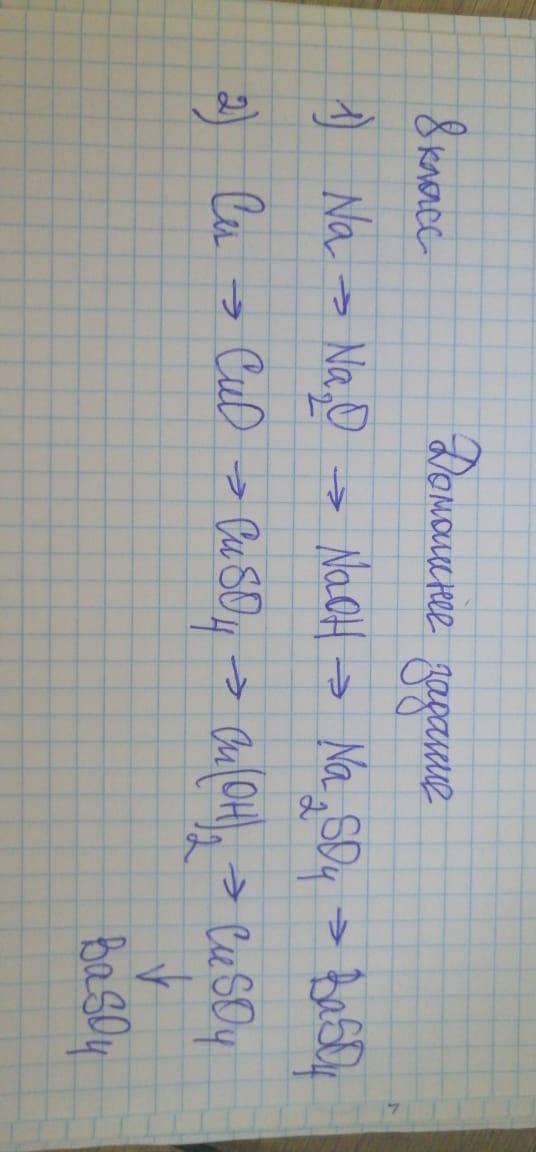 8 класс Домашнее задание
1) Na → Na₂O → NaOH → Na₂SO₄ → BaSO₄
2) Cu → CuO → CuSO₄ → Cu(OH)₂ → CuSO₄
↓
BaSO₄